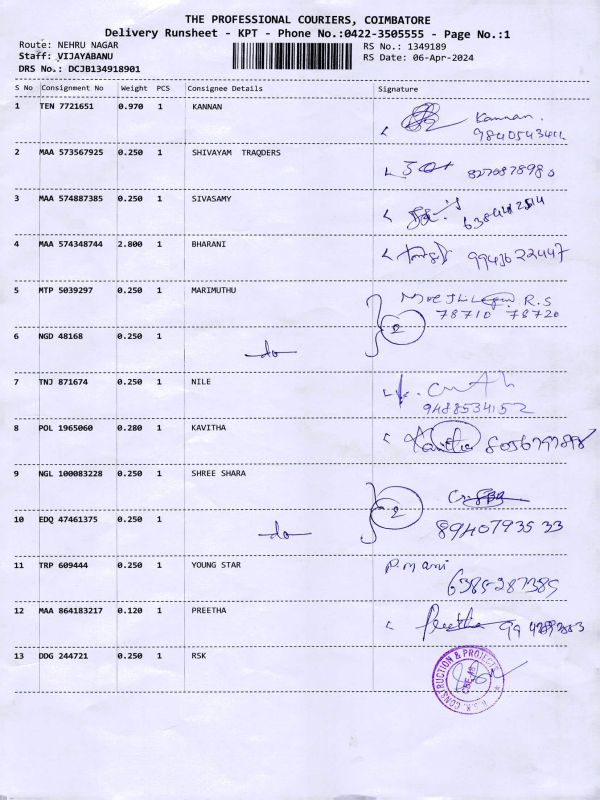 THE PROFESSIONAL COURIERS, COIMBATORE
Delivery Runsheet - KPT - Phone No.:0422-3505555 - Page No.:1
Route: NEHRU NAGAR
Staff: VIJAYABANU
DRS No.: DCJB134918901
RS No.: 1349189
RS Date: 06-Apr-2024
S No Consignment No Weight PCS Consignee Details Signature
1 TEN 7721651 0.970 1 KANNAN Kannan.
2 MAA 573567925 0.250 1 SHIVAYAM TRAQDERS
3 MAA 574887385 0.250 1 SIVASAMY
4 MAA 574348744 2.800 1 BHARANI 9943622447
5 MTP 5039297 0.250 1 MARIMUTHU R.S
78710 78720
6 NGD 48168 0.250 1 do 2
7 TNJ 871674 0.250 1 NILE
9488534152
8 POL 1965060 0.280 1 KAVITHA Kavitha
9 NGL 100083228 0.250 1 SHREE SHARA
10 EDQ 47461375 0.250 1 do 2 8940793533
11 TRP 609444 0.250 1 YOUNG STAR P. Mani
6385287389
12 MAA 864183217 0.120 1 PREETHA Preetha
13 DDG 244721 0.250 1 RSK R.S.K. CONSTRUCTION & PROJECTS